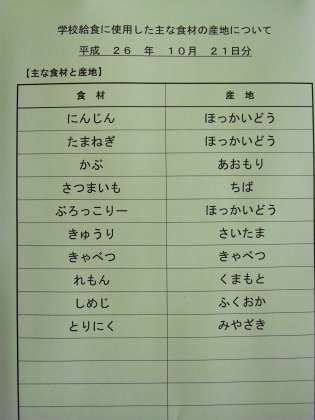 学校給食に使用した主な食材の産地について
平成 26 年 10月 21日分
【主な食材と産地】
食 材 産 地
にんじん ほっかいどう
たまねぎ ほっかいどう
かぶ あおもり
さつまいも ちば
ぶろっこりー ほっかいどう
きゅうり さいたま
きゃべつ きゃべつ
れもん くまもと
しめじ ふくおか
とりにく みやざき